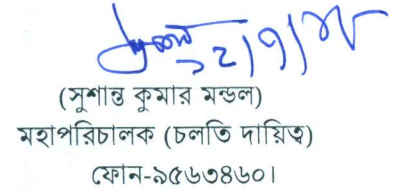 ১২/৭/১৮
(সুশান্ত কুমার মন্ডল)
মহাপরিচালক (চলতি দায়িত্ব)
ফোন-৯৫৬৩৪৬০।